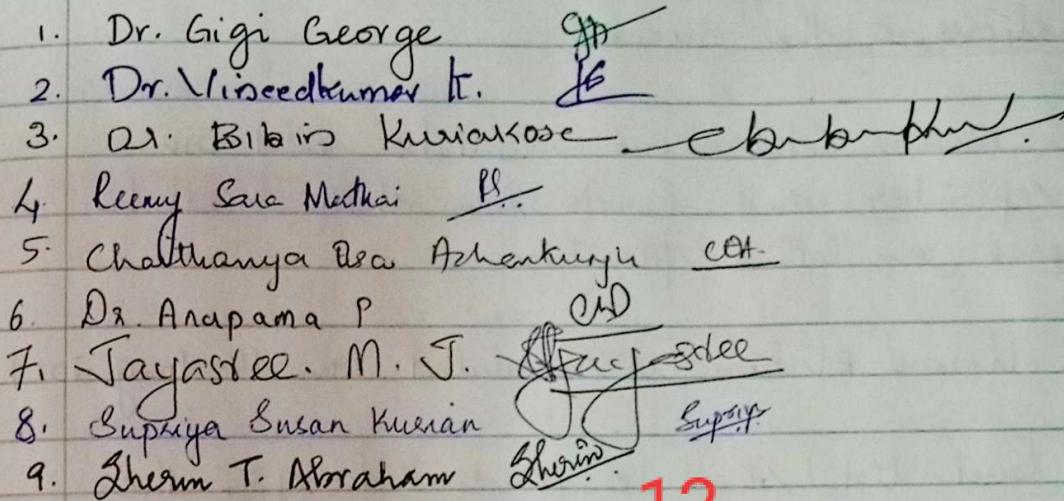 1. Dr. Gigi George
2. Dr. Vineedkumar K.
3. Dr. Bibin Kuriakose
4. Reemy Sara Mathai RS.
5. Chaithanya Elsa Azhenkunju CEA.
6. Dr. Anupama P
7. Jayasree. M. J. Jayasree
8. Supriya Susan Kurian Supriya
9. Sherin T. Abraham Sherin
12